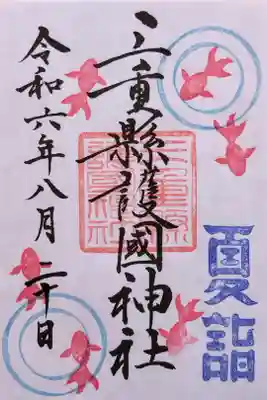 夏詣
三重縣護國神社
令和六年八月二十日